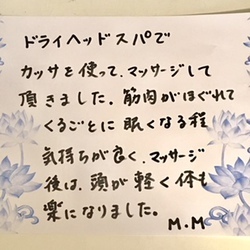 ドライヘッドスパで
カッサを使って、マッサージして
頂きました。筋肉がほぐれて
くるごとに眠くなる程
気持ちが良く、マッサージ
後は、頭が軽く体も
楽になりました。
M.M